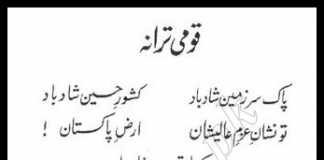 قومی ترانہ
پاک سرزمین شاد باد کشورِ حسین شاد باد
تو نشانِ عزمِ عالیشان ارضِ پاکستان !